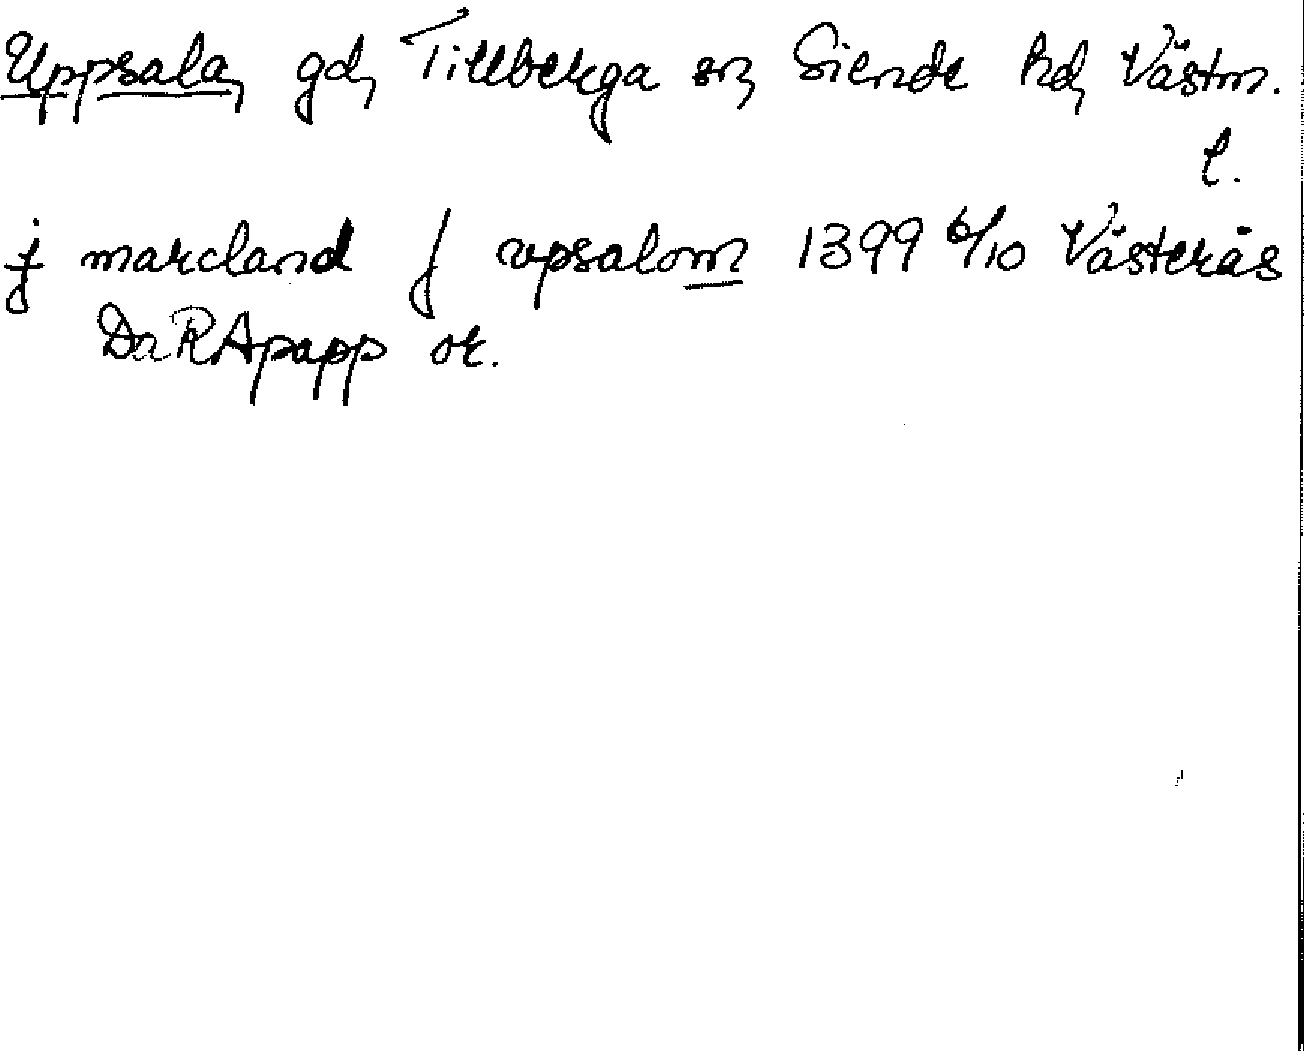 Uppsala, gd, Tillberga sn, Siende hd, Västm.
l.
j marcland j vpsalom 1399 6/10 Västerås
DaRApapp or.